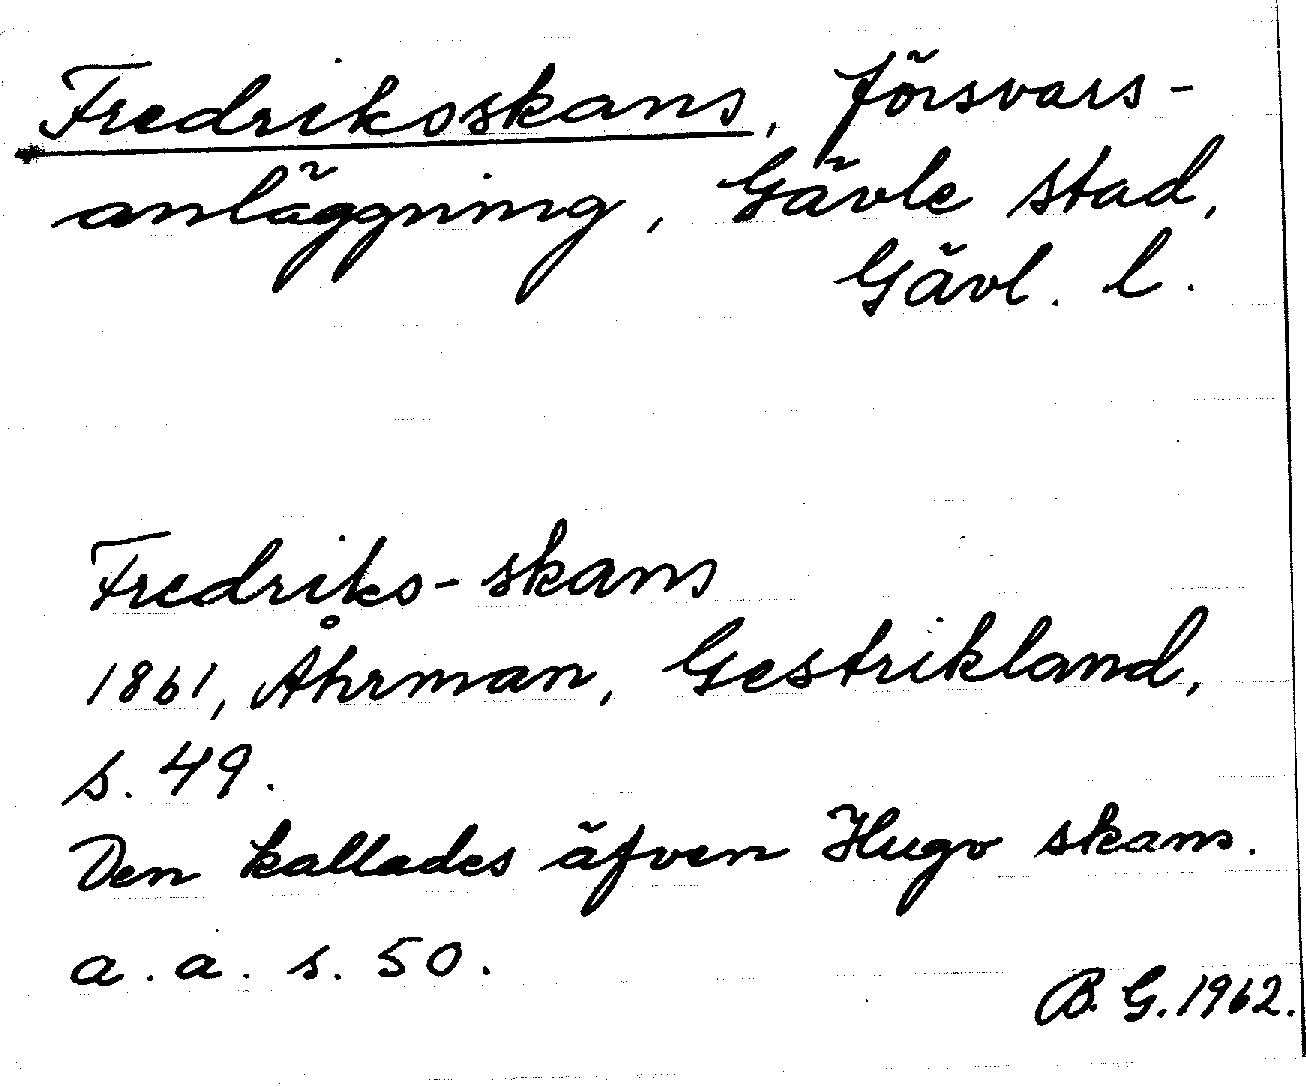 Fredriksskans, försvars-
anläggning, Gävle stad,
Gävl. l.
Fredriks-skans
1861, Åhrman, Gestrikland,
s. 49.
Den kallades äfven Hugo skans.
a. a. s. 50.
B. G. 1962.